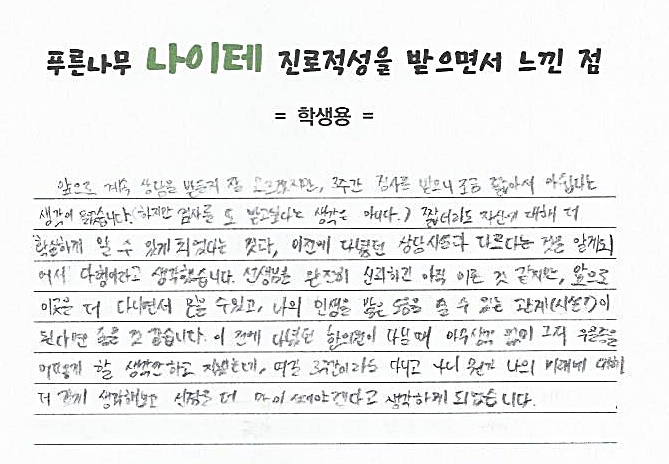 푸른나무 나이테 진로적성을 받으면서 느낀 점
= 학생용 =
앞으로 계속 상담을 받을지 잘 모르겠지만, 3주간 검사를 받으니 조금 짧아서 아쉽다는
생각이 들었습니다. (하지만 검사를 또 받고싶다는 생각은 아니다.) 짧더라도 자신에 대해 더
확실하게 알 수 있게 되었다는 것과, 이전에 다녔던 상담시설과 다르다는 것을 알게되
어서 다행이라고 생각했습니다. 선생님을 완전히 신뢰하긴 아직 이른 것 같지만, 앞으로
이곳을 더 다니면서 믿을 수있고, 나의 인생을 도움을 줄 수 있는 관계(시설?)이
된다면 좋을 것 같습니다. 이 전에 다녔던 한의원이 다닐 때 아무생각 없이 그저 우울증을
어떻게 할 생각안하고 지냈는데, 여길 3주간이라도 다니고 나니 뭔가 나의 미래에 대해
더 깊게 생각해보고 신경을 더 많이 써야 겠다고 생각하게 되었습니다.